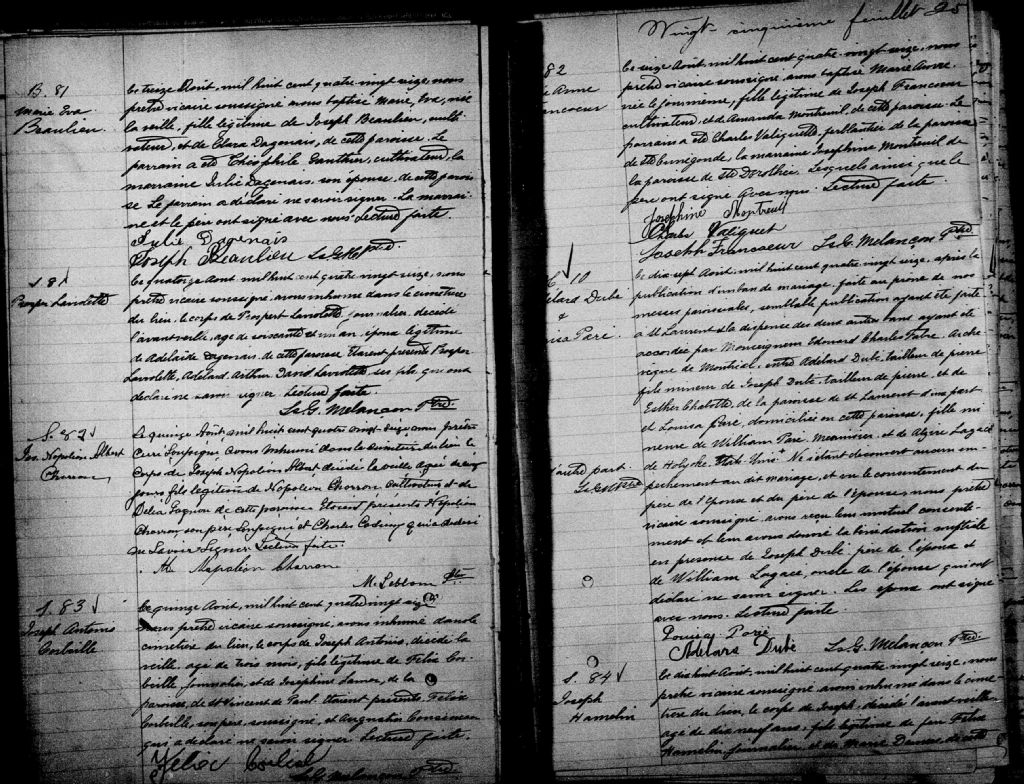 B. 81
Marie Eva
Beaulieu
Le treize Août, mil huit cent quatre vingt seize, nous
prêtre vicaire soussigné avons baptisé Marie, Eva, née
la veille, fille légitime de Joseph Beaulieu, culti-
vateur, et de Clara Dagenais, de cette paroisse. Le
parrain a été Théophile Gauthier, cultivateur, la
marraine Julie Dagenais son épouse, de cette parois-
se. Le parrain a déclaré ne savoir signer. La marrai-
ne et le père ont signé avec nous. Lecture faite.
Julie Dagenais
Joseph Beaulieu Ls G. M. Ptre.
S. 81
Prosper Laviolette
Le quatorze Août mil huit cent quatre vingt seize, nous
prêtre vicaire soussigné, avons inhumé dans le cimetière
du lieu, le corps de Prospert Laviolette, journalier, décédé
l'avant veille, agé de soixante et un an, époux légitime
de Adelaide Dagenais de cette paroisse. Etaient présents Prosper
Laviolette, Adelard, Arthur David Laviolette, ses fils qui ont
déclaré ne savoir signer. Lecture faite.
Ls G. Melançon Ptre
S. 82
Jos. Napoléon Albert
Charron
Le quinze Août, mil huit cent quatre vingt seize, nous prêtre
Curé soussigné, avons inhumé dans le cimetière du lieu le
corps de Joseph Napoléon Albert décédé la veille, agé de
jours, fils légitime de Napoléon Charron cultivateur et de
Delia Gagnon de cette paroisse. Etaient présents Napoléon
Charron son père soussigné et Charles qui a déclaré
ne savoir signer. Lecture faite.
Napoléon Charron
M. Leblanc Ptre
S. 83
Joseph Antonio
Corbeille
Le quinze Août, mil huit cent quatre vingt seize
nous prêtre vicaire soussigné, avons inhumé dans le
cimetière du lieu, le corps de Joseph Antonio, décédé la
veille, agé de trois mois, fils légitime de Felix Cor-
beille, journalier, et de Josephine de la
paroisse de St Vincent de Paul. Etaient présents Felix
Corbeille, son père, soussigné, et Augustin
qui a déclaré ne savoir signer. Lecture faite.
Felix Corbeil
Ls G. Melançon Ptre
Vingt cinquième feuillet 25
82
Anne
Francoeur
Le seize Août, mil huit cent quatre vingt seize, nous
prêtre vicaire soussigné, avons baptisé Marie Anne
née le jour même, fille légitime de Joseph Francoeur
cultivateur, et de Amanda Montreuil, de cette paroisse. Le
parrain a été Charles Valiquette, ferblantier de la paroisse
de Ste Cunegonde, la marraine Josephine Montreuil de
la paroisse de Ste Dorothée. Lesquels ainsi que le
père ont signé avec nous. Lecture faite
Josephine Montreuil
Charles Valiquet
Joseph Francoeur Ls G. Melançon Ptre.
10
Adelard Dubé
&
Louisa Paré.
Le dix sept Août, mil huit cent quatre vingt seize, après la
publication d'un ban de mariage faite au prône de nos
messes paroissiales, semblable publication ayant été faite
à St Laurent & la dispense des deux autres bans ayant été
accordée par Monseigneur Edouard Charles Fabre, Arche-
vêque de Montréal, entre Adelard Dubé, tailleur de pierre
fils mineur de Joseph Dubé, tailleur de pierre, et de
Esther de la paroisse de St Laurent d'une part
et Louisa Paré, domiciliée en cette paroisse, fille mi-
neure de William Paré, Menuisier, et de Alzire Lagacé
de Holyoke, Etats Unis + Ne s'étant découvert aucun em-
d'autre part.
Ls G. M Ptre
pêchement au dit mariage, et vu le consentement du
père de l'époux et du père de l'épouse, nous prêtre
vicaire soussigné, avons reçu leur mutuel consente-
ment et leur avons donné la bénédiction nuptiale
en présence de Joseph Dubé, père de l'époux et
de William Lagacé, oncle de l'épouse qui ont
déclaré ne savoir signer. Les époux ont signé
avec nous. Lecture faite
Louisa Paré
Adelard Dubé Ls G. Melançon Ptre.
S. 84
Joseph
Hamelin
Le dix huit Août, mil huit cent quatre vingt seize, nous
prêtre vicaire soussigné avons inhumé dans le cime-
tière du lieu, le corps de Joseph, décédé l'avant veille
agé de dix neuf ans, fils légitime de feu Felix
Hamelin, journalier, et de Marie de cette